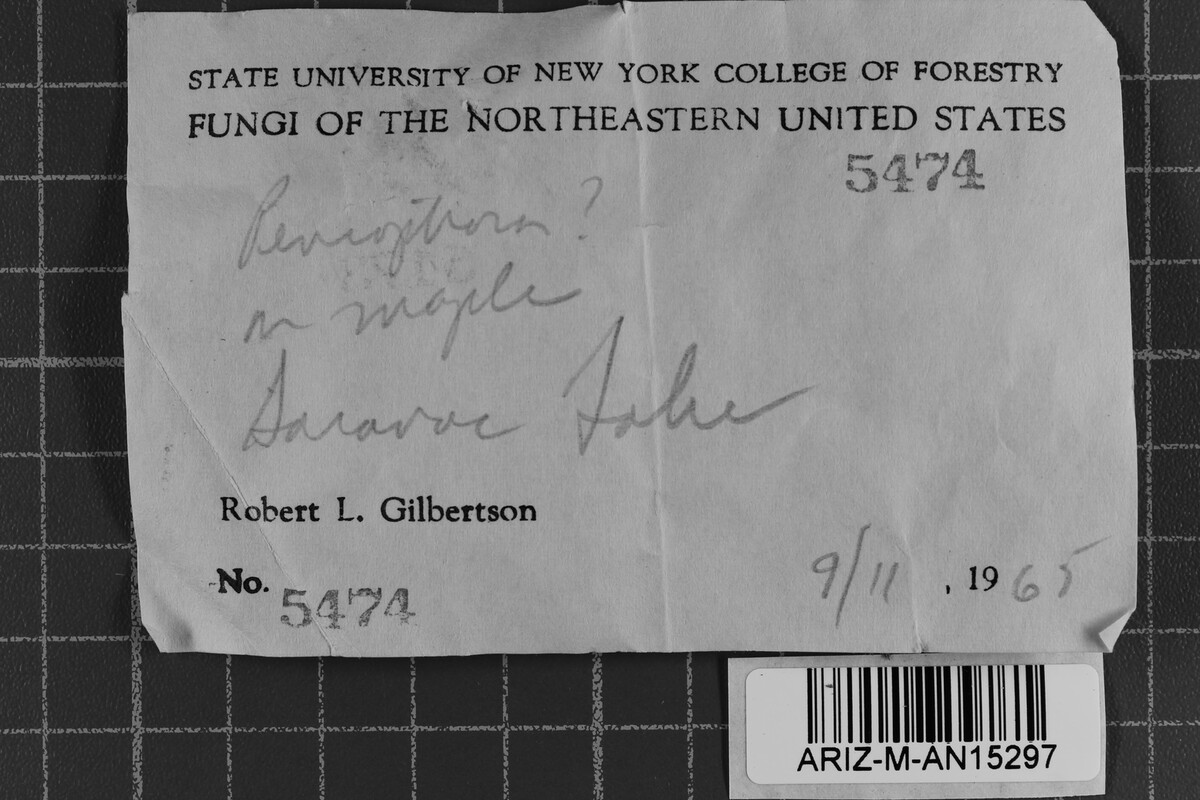 STATE UNIVERSITY OF NEW YORK COLLEGE OF FORESTRY
FUNGI OF THE NORTHEASTERN UNITED STATES
5474
Peniophora ?
on maple
Saranac Lake
Robert L. Gilbertson
No. 5474
9/11, 1965
ARIZ-M-AN15297